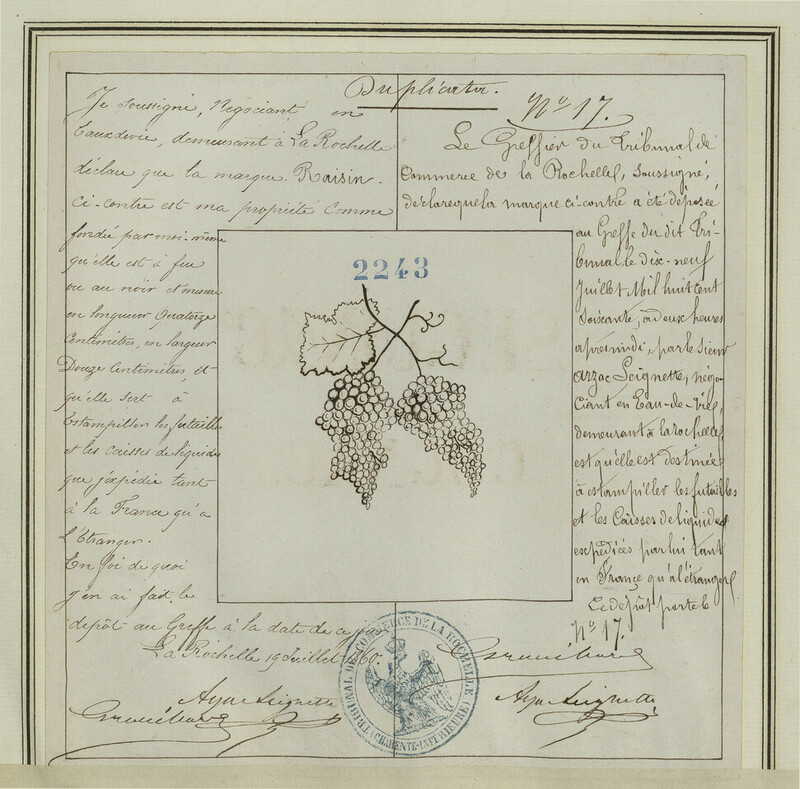 Duplicata.
Je soussigné, Négociant en
Eauxdevie, demeurant à La Rochelle
déclare que la marque Raisin.
Ci-contre est ma propriété comme
fondée par moi-même
qu'elle est à feu
ou au noir et mesure
en longueur Quatorze
Centimètres, en largeur
Douze Centimètres, et
qu'elle sert à
Estampiller les futailles
et les caisses de liquides
que j'expédie tant
à la France qu'a
L'Etranger.
En foi de quoi
j'en ai fait le
depôt au Greffe à la date de ce jour
La Rochelle 19 Juillet 1860.
Seignette
2243
No 17.
Le Greffier du Tribunal de
Commerce de la Rochelle, Soussigné,
déclare que la marque ci-contre a été déposée
au Greffe du dit Tri-
bunal le dix-neuf
Juillet Mil huit cent
Soixante, à deux heures
après midi, par le Sieur
Seignette, négo-
ciant en Eau-de-Vie,
demeurant à la rochelle,
est qu'elle est destinée
à estampiller les futailles
et les Caisses de liquides
expédiées par lui tant
en France qu'al'étranger
Le dépôt porte le
No 17.
Seignette
TRIBUNAL DE COMMERCE DE LA ROCHELLE
(CHARENTE-INFÉRIEURE)